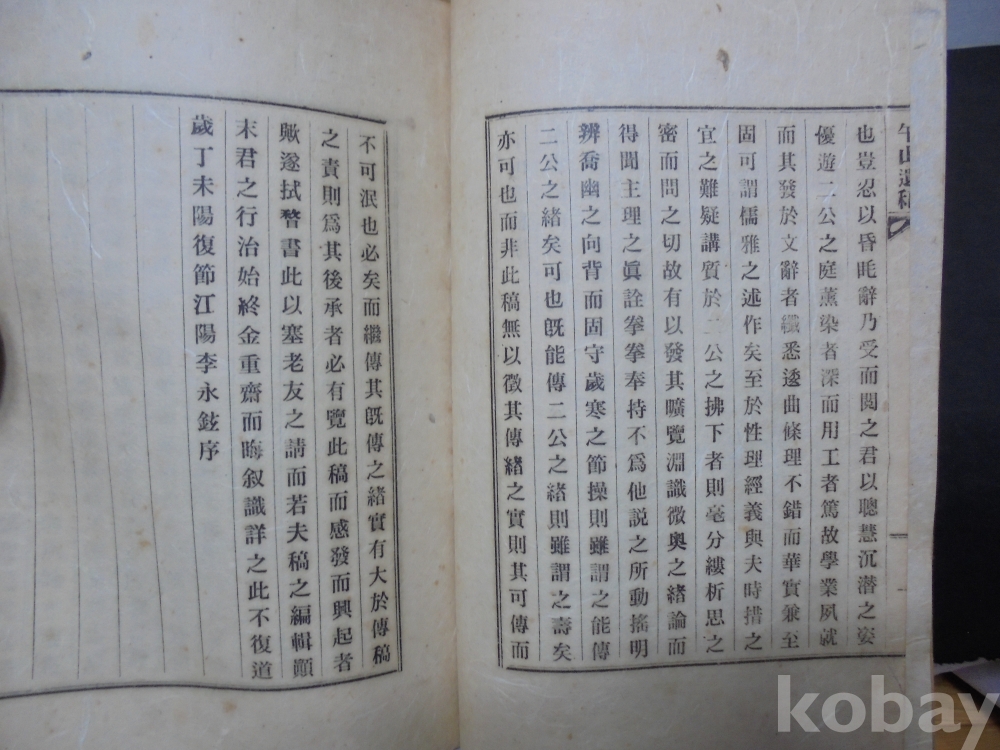 也豈忍以昏眊辭乃受而閲之君以聰慧沉潛之姿
優遊二公之庭薰染者深而用工者篤故學業夙就
而其發於文辭者纖悉逶曲條理不錯而華實兼至
固可謂儒雅之述作矣至於性理經義與夫時措之
宜之難疑講質於二公之拂下者則毫分縷析思之
密而問之切故有以發其曠覽淵識微奥之緒論而
得聞主理之眞詮拳拳奉持不爲他説之所動搖明
辨喬幽之向背而固守歲寒之節操則雖謂之能傳
二公之緒矣可也旣能傳二公之緒則雖謂之壽矣
亦可也而非此稿無以徵其傳緒之實則其可傳而
不可泯也必矣而繼傳其旣傳之緒實有大於傳稿
之責則爲其後承者必有覽此稿而感發而興起者
歟遂拭瞀書此以塞老友之請而若夫稿之編輯顚
末君之行治始終金重齋而晦叙識詳之此不復道
歲丁未陽復節江陽李永鉉序
山遺稿
kobay